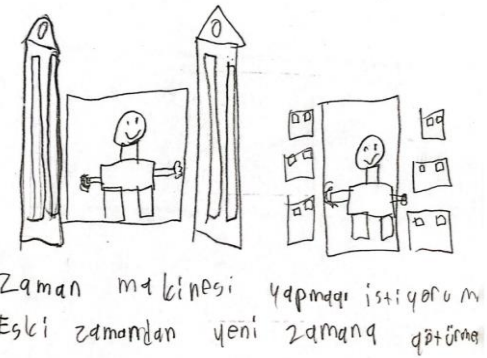 Zaman makinesi yapmağı istiyorum
Eski zamandan yeni zamana götürme